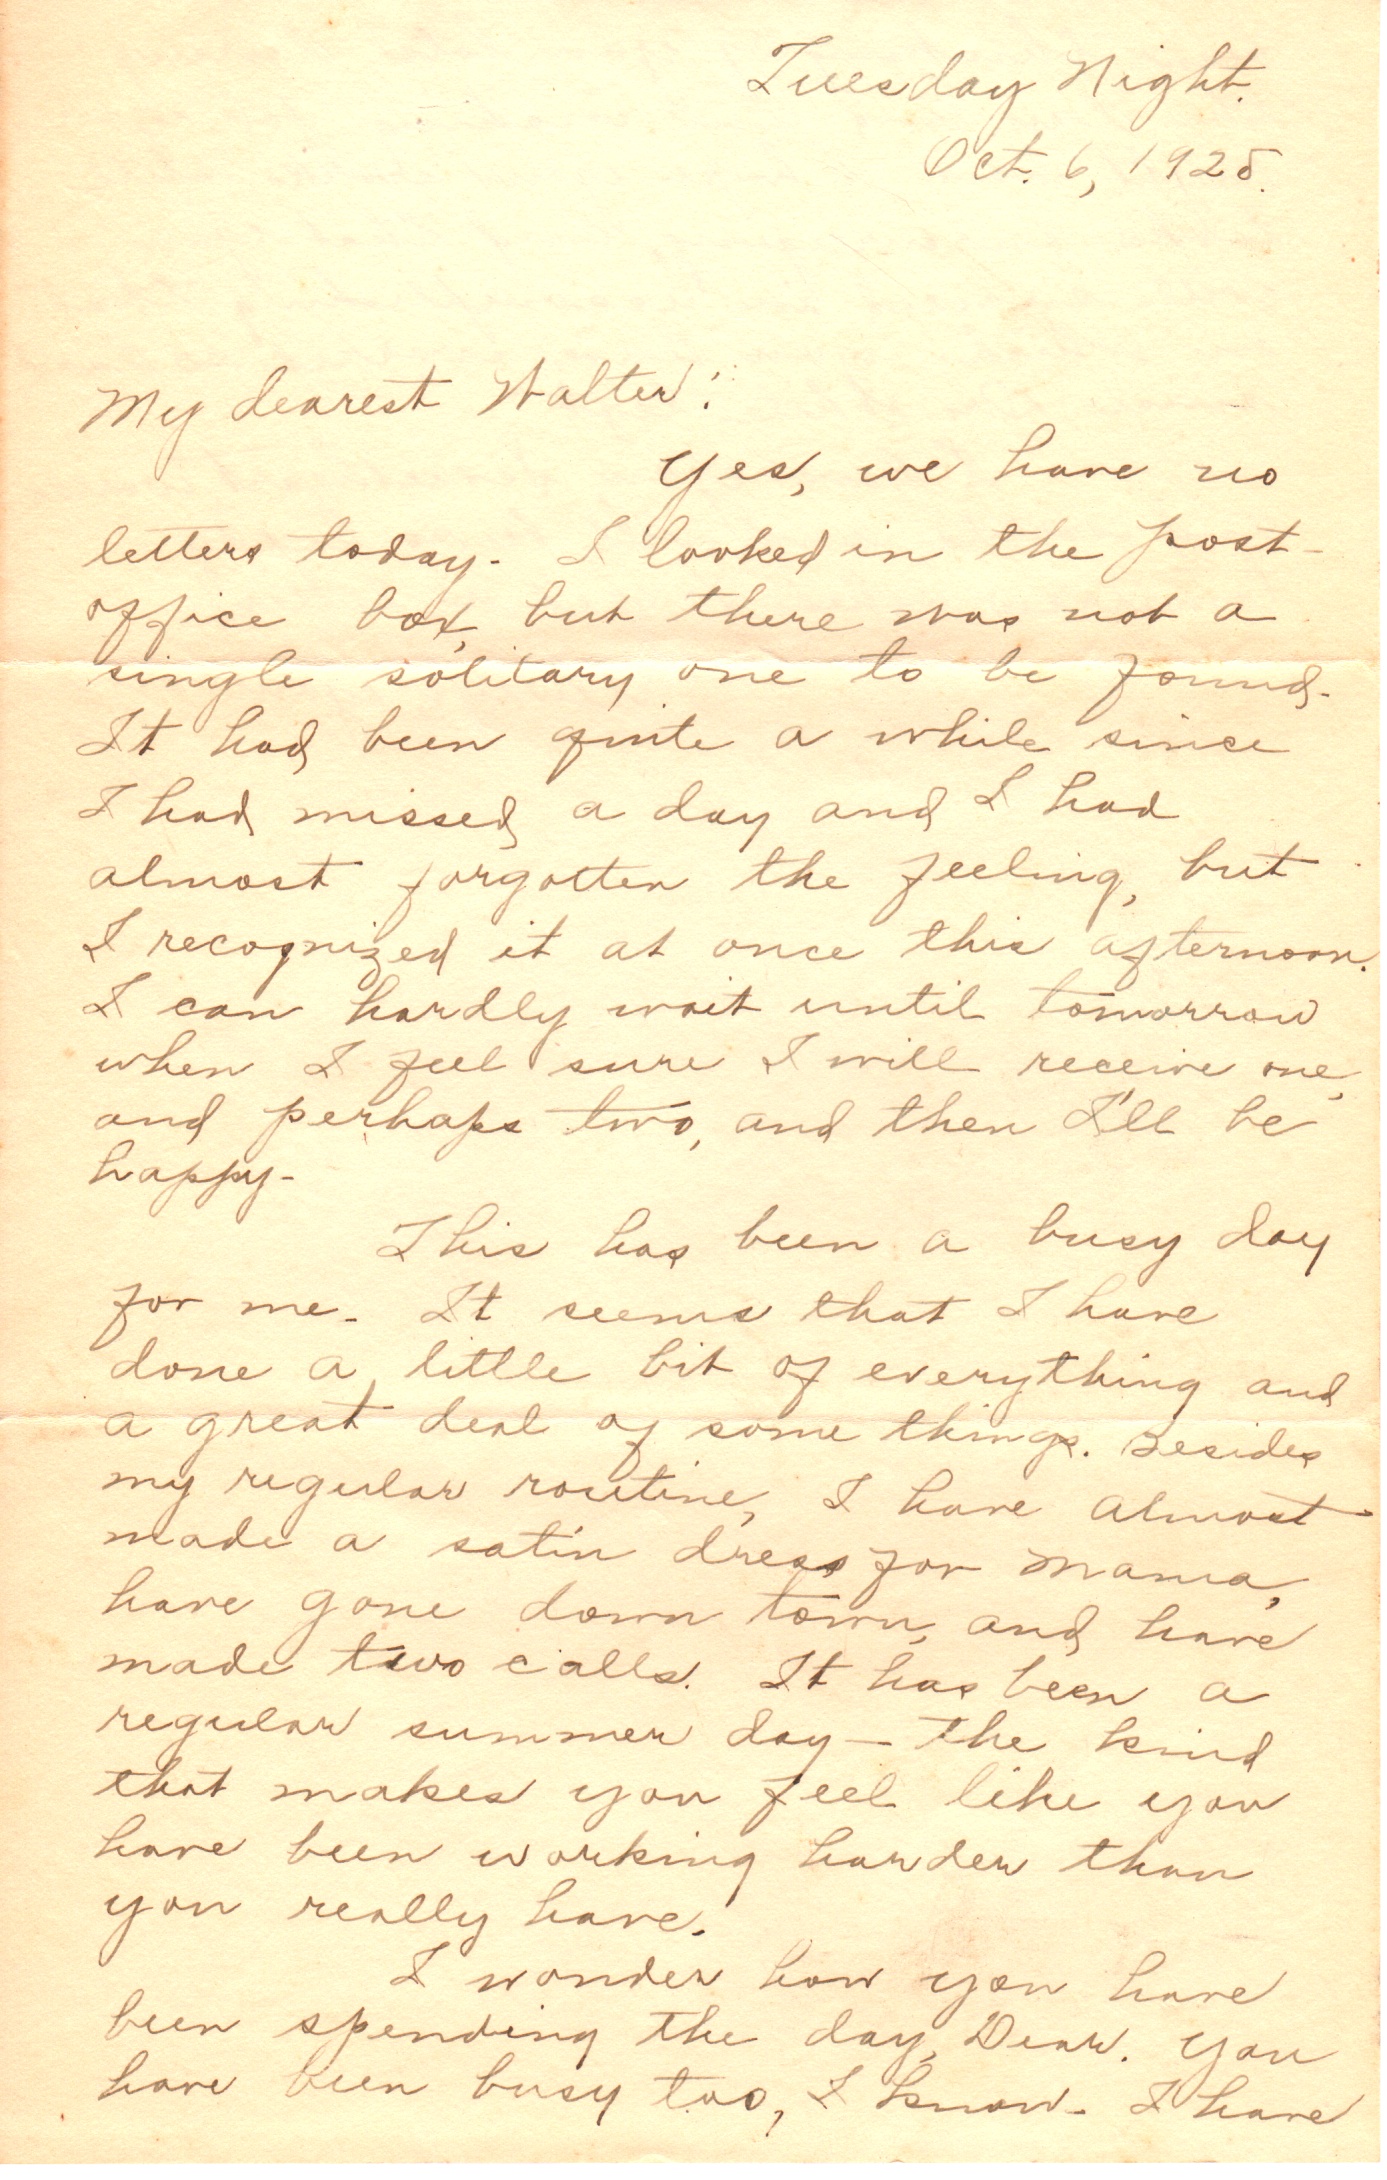 Tuesday Night.
Oct. 6, 1925.
My dearest Walter:
Yes, we have no
letters today. I looked in the post-
office box, but there was not a
single solitary one to be found.
It had been quite a while since
I had missed a day and I had
almost forgotten the feeling, but
I recognized it at once this afternoon.
I can hardly wait until tomorrow
when I feel sure I will receive one,
and perhaps two, and then I'll be
happy.
This has been a busy day
for me. It seems that I have
done a little bit of everything and
a great deal of some things. Besides
my regular routine, I have almost
made a satin dress for Mama,
have gone down town, and have
made two calls. It has been a
regular summer day — the kind
that makes you feel like you
have been working harder than
you really have.
I wonder how you have
been spending the day, Dear. You
have been busy too, I know. I have